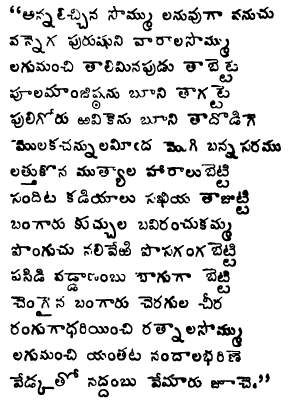 “అన్నలిచ్చిన సొమ్ము లనువుగా వనుచు
వన్నెగ పురుషుని వారాలసొమ్ము
లగుమంచి తాలిమినపుడు తాబెట్టె
పూలమాంజిష్ఠను బూని తాగట్టె
పులిగోరు ఱవికెను బూని తాదొడిగె
మొలకచన్నులమీఁద మెఱిగి బన్నసరము
లత్తుకొన ముత్యాల హారాలుబెట్టి
సందిట కడియాలు సఖియ తాజుట్టి
బంగారు కుచ్చుల బవిరంచుకమ్మ
పొంగుచు నలివేఱి పొసగంగబెట్టి
పసిడి వడ్డాణంబు బాగుగా బెట్టి
చెంగైన బంగారు చెరగుల చీర
రంగుగాధరియించి రత్నాలసొమ్ము
లగుమంచి యంతట నందాలభరిణె
వేడ్కతో నద్దంబు వేమారు జూచె.”